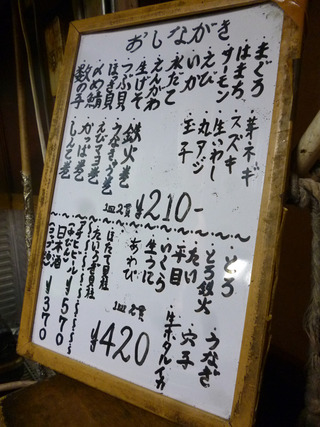 おしながき
まぐろ
はまち
サーモン
いか
えび
水だこ
えんがわ
生げそ
つぶ貝
ほっき貝
〆め鯖
数の子
芽ネギ
スズキ
生いわし
丸アジ
玉子
鉄火巻
うなきゅう巻
えびマヨ巻
かっぱ巻
しんこ巻
1皿2貫
¥210-
とろ
とろ鉄火
たい
平目
いくら
生うに
あわび
うなぎ
穴子
生ホタルイカ
1皿2貫
¥420
ほたて貝柱
たいらぎ貝柱
¥570
日本酒
¥370